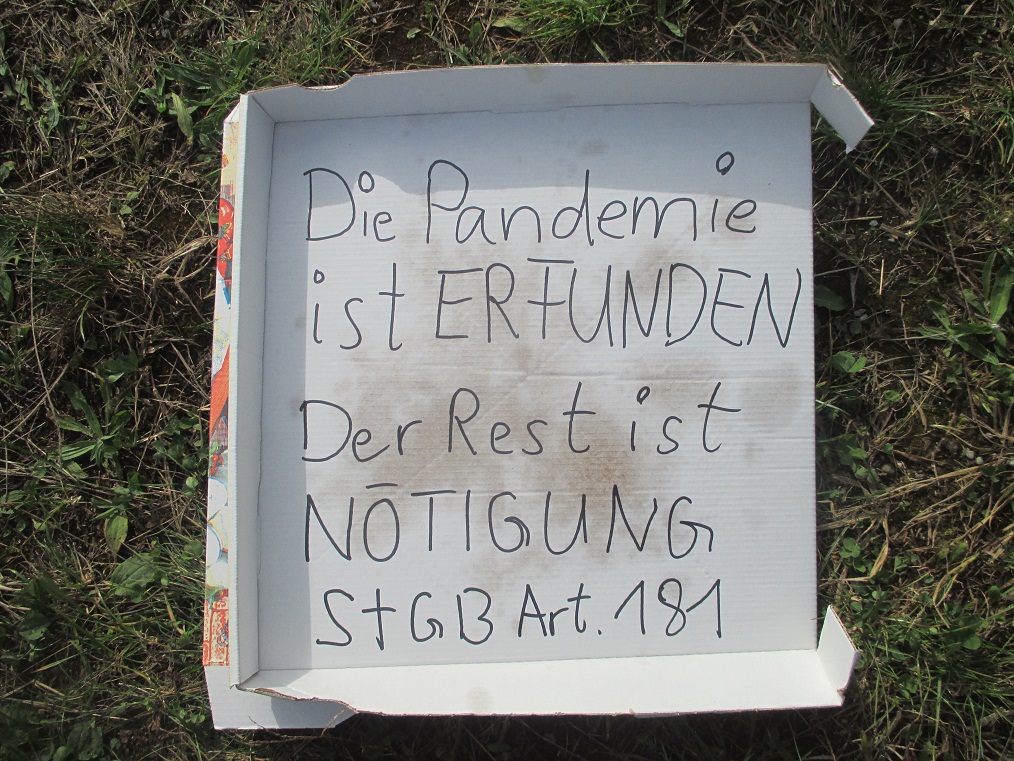 Die Pandemie
ist ERFUNDEN
Der Rest ist
NÖTIGUNG
StGB Art. 181